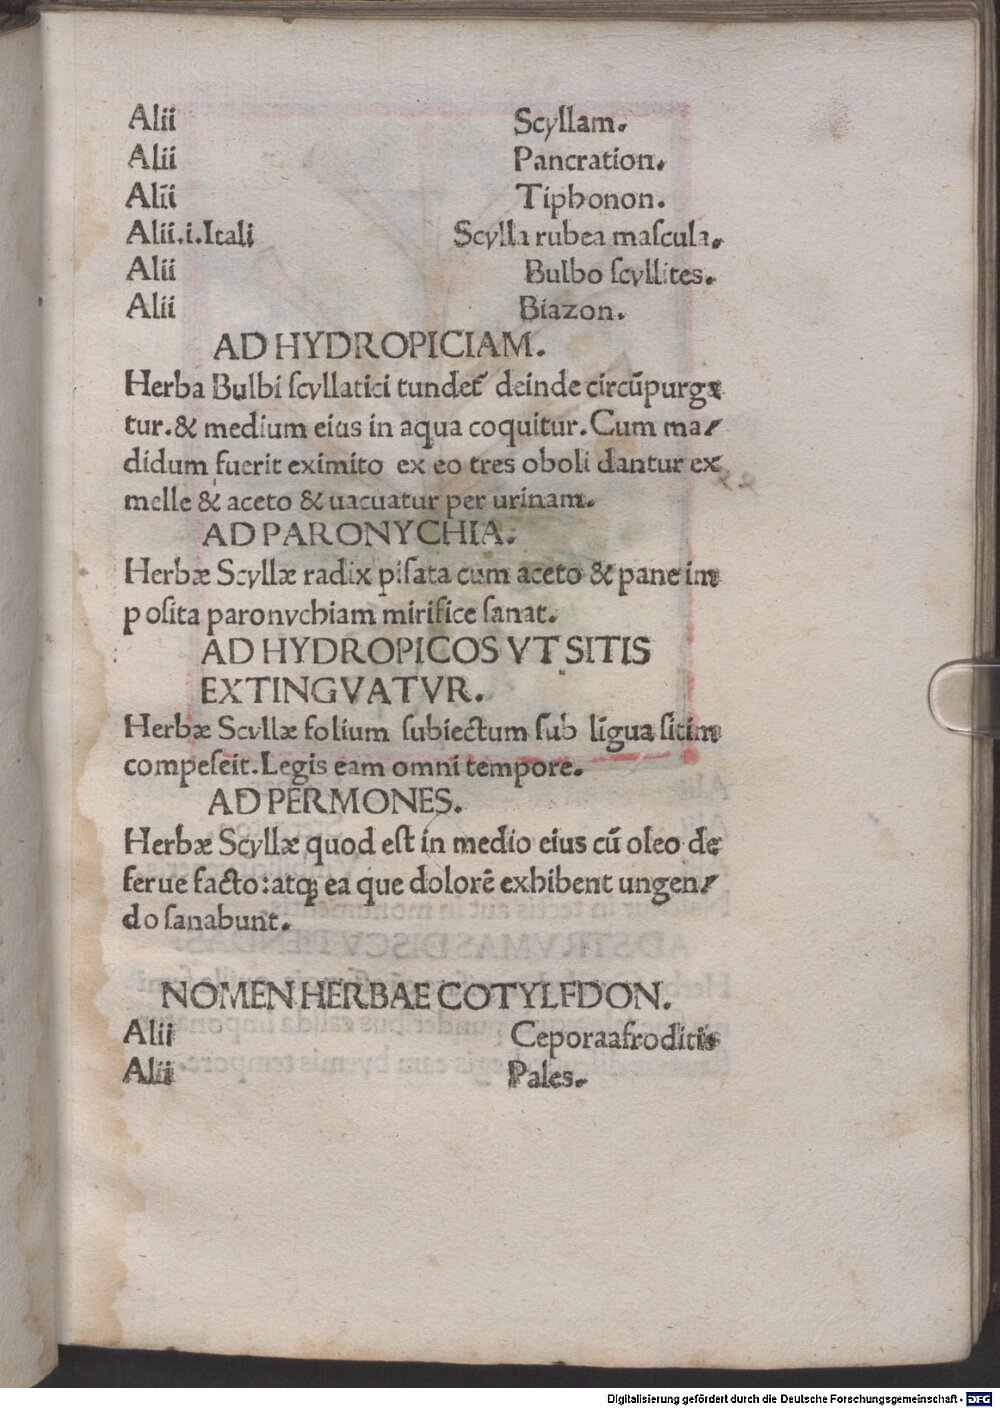 Alii Scyllam.
Alii Pancration.
Alii Tiphonon.
Alii.i.Itali Scylla rubea maſcula.
Alii Bulbo ſcyllites.
Alii Biazon.
AD HYDROPICIAM.
Herba Bulbi ſcyllatici tundet᷑ deinde circũpurga
tur.& medium eius in aqua coquitur.Cum ma/
didum fuerit eximito ex eo tres oboli dantur ex
melle & aceto & uacuatur per urinam.
AD PARONYCHIA.
Herbæ Scyllæ radix piſata cum aceto & pane im
poſita paronychiam mirifice ſanat.
AD HYDROPICOS VT SITIS
EXTINGVATVR.
Herbæ Scyllæ folium ſubiectum ſub lĩgua ſitim
compeſeit.Legis eam omni tempore.
AD PERMONES.
Herbæ Scyllæ quod eſt in medio eius cũ oleo de
ferue facto:atq; ea que dolorẽ exhibent ungen/
do ſanabunt.
NOMEN HERBAE COTYLEDON.
Alii Ceporaafroditis
Alii Pales.
Digitalisierung gefördert durch die Deutsche Forschungsgemeinschaft - DFG